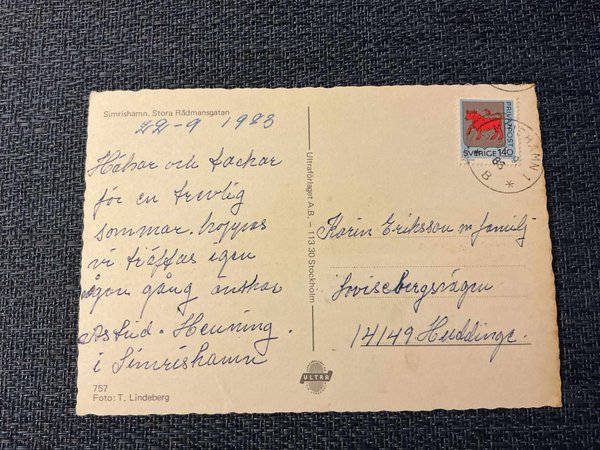 Simrishamn, Stora Rådmansgatan
22-9 1983
Hälsar och tackar
för en trevlig
sommar. hoppas
vi träffas igen
någon gång önskar
Astrid. Henning.
i Simrishamn
757
Foto: T, Lindeberg
Ultraförlaget A.B. – 113 30 Stockholm
ULTRA
PRIVATPOST
SVERIGE 140
HAMN 1
83
B
Karin Eriksson m familj
Lovisebergsvägen
14149 Huddinge.